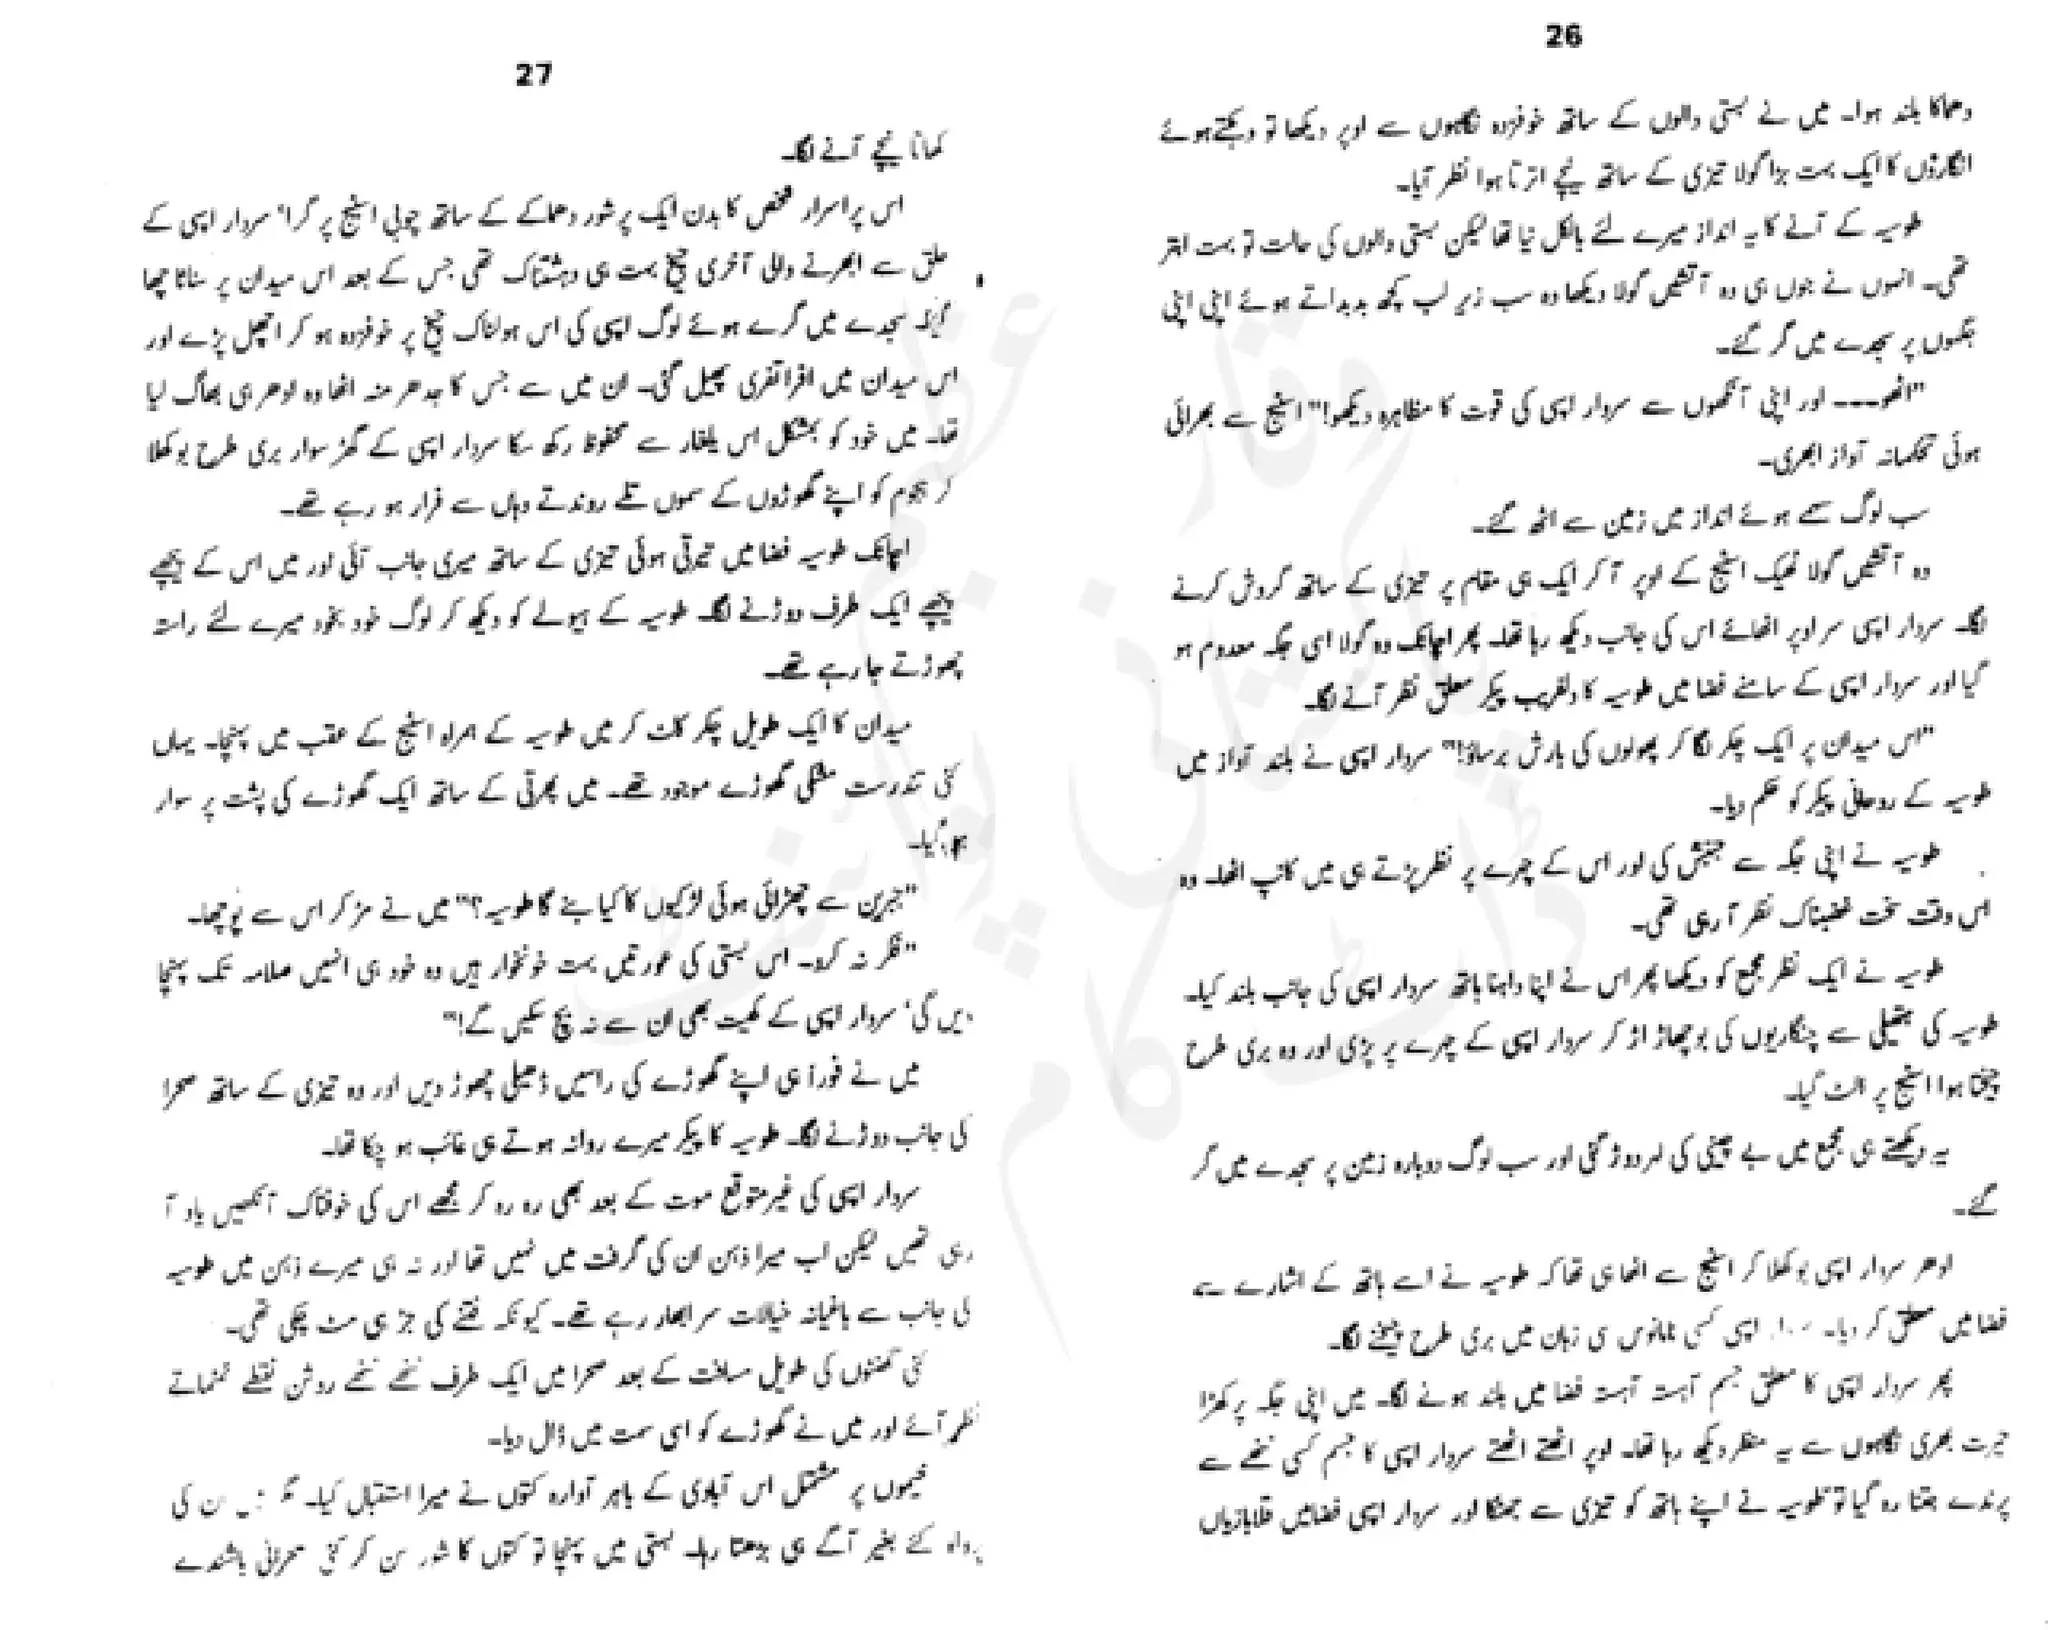 26
دھماکا بلند ہوا۔ میں نے بستی والوں کے ساتھ خوفزدہ نگاہوں سے اوپر دیکھا تو دہکتے ہوئے
انگاروں کا ایک بہت بڑا گولا تیزی کے ساتھ نیچے اترتا ہوا نظر آیا۔
طوبیہ کے آنے کا یہ انداز میرے لئے بالکل نیا تھا لیکن بستی والوں کی حالت تو بہت ابتر
تھی۔ انہوں نے جوں ہی وہ آتشیں گولا دیکھا وہ سب زیر لب کچھ بدبداتے ہوئے اپنی اپنی
جگہوں پر سجدے میں گر گئے۔
"اٹھو۔۔۔ اور اپنی آنکھوں سے سردار ایسی کی قوت کا مظاہرہ دیکھو!" اسٹیج سے بھرائی
ہوئی تحکمانہ آواز ابھری۔
سب لوگ سہمے ہوئے انداز میں زمین سے اٹھ گئے۔
وہ آتشیں گولا ٹھیک اسٹیج کے اوپر آ کر ایک ہی مقام پر تیزی کے ساتھ گردش کرنے
لگا۔ سردار ایسی سر اوپر اٹھائے اس کی جانب دیکھ رہا تھا۔ پھر اچانک وہ گولا اسی جگہ معدوم ہو
گیا اور سردار ایسی کے سامنے فضا میں طوبیہ کا دلفریب پیکر معلق نظر آنے لگا۔
"اس میدان پر ایک چکر لگا کر پھولوں کی بارش برساؤ!" سردار ایسی نے بلند آواز میں
طوبیہ کے روحانی پیکر کو حکم دیا۔
طوبیہ نے اپنی جگہ سے جنبش کی اور اس کے چہرے پر نظر پڑتے ہی میں کانپ اٹھا۔ وہ
اس وقت سخت غضبناک نظر آ رہی تھی۔
طوبیہ نے ایک نظر مجمع کو دیکھا پھر اس نے اپنا داہنا ہاتھ سردار ایسی کی جانب بلند کیا۔
طوبیہ کی ہتھیلی سے چنگاریوں کی بوچھاڑ اڑ کر سردار ایسی کے چہرے پر پڑی اور وہ بری طرح
چیختا ہوا اسٹیج پر الٹ گیا۔
یہ دیکھتے ہی مجمع میں بے چینی کی لہر دوڑ گئی اور سب لوگ دوبارہ زمین پر سجدے میں گر
گئے۔
ادھر سردار ایسی بوکھلا کر اسٹیج سے اٹھا ہی تھا کہ طوبیہ نے اسے ہاتھ کے اشارے سے
فضا میں معلق کر دیا۔ سردار ایسی کسی نامانوس سی زبان میں بری طرح چیخنے لگا۔
پھر سردار ایسی کا معلق جسم آہستہ آہستہ فضا میں بلند ہونے لگا۔ میں اپنی جگہ پر کھڑا
حیرت بھری نگاہوں سے یہ منظر دیکھ رہا تھا۔ اوپر اٹھتے اٹھتے سردار ایسی کا جسم کسی ننھے سے
پرندے جتنا رہ گیا تو طوبیہ نے اپنے ہاتھ کو تیزی سے جھٹکا اور سردار ایسی فضا میں قلابازیاں
27
کھاتا نیچے آنے لگا۔
اس پراسرار شخص کا بدن ایک پر شور دھماکے کے ساتھ چوبی اسٹیج پر گرا' سردار ایسی کے
حلق سے ابھرنے والی آخری چیخ بہت ہی دہشتناک تھی جس کے بعد اس میدان پر سناٹا چھا
گیا۔ سجدے میں گرے ہوئے لوگ ایسی کی اس ہولناک چیخ پر خوفزدہ ہو کر اچھل پڑے اور
اس میدان میں افراتفری پھیل گئی۔ ان میں سے جس کا جدھر منہ اٹھا وہ ادھر ہی بھاگ لیا
تھا۔ میں خود کو بمشکل اس یلغار سے محفوظ رکھ سکا سردار ایسی کے گھڑ سوار بری طرح بوکھلا
کر ہجوم کو اپنے گھوڑوں کے سموں تلے روندتے وہاں سے فرار ہو رہے تھے۔
اچانک طوبیہ فضا میں تیرتی ہوئی تیزی کے ساتھ میری جانب آئی اور میں اس کے پیچھے
پیچھے ایک طرف دوڑنے لگا۔ طوبیہ کے ہیولے کو دیکھ کر لوگ خود بخود میرے لئے راستہ
چھوڑتے جا رہے تھے۔
میدان کا ایک طویل چکر کاٹ کر میں طوبیہ کے ہمراہ اسٹیج کے عقب میں پہنچا۔ یہاں
کئی تندرست مشکی گھوڑے موجود تھے۔ میں پھرتی کے ساتھ ایک گھوڑے کی پشت پر سوار
ہو گیا۔
"جبرین سے چھڑائی ہوئی لڑکیوں کا کیا بنے گا طوبیہ؟" میں نے مڑ کر اس سے پوچھا۔
"فکر نہ کرو۔ اس بستی کی عورتیں بہت خونخوار ہیں وہ خود ہی انہیں صلامہ تک پہنچا
دیں گی' سردار ایسی کے کھیت بھی ان سے نہ بچ سکیں گے!"
میں نے فوراً ہی اپنے گھوڑے کی راسیں ڈھیلی چھوڑ دیں اور وہ تیزی کے ساتھ صحرا
کی جانب دوڑنے لگا۔ طوبیہ کا پیکر میرے روانہ ہوتے ہی غائب ہو چکا تھا۔
سردار ایسی کی غیر متوقع موت کے بعد بھی رہ رہ کر مجھے اس کی خوفناک آنکھیں یاد آ
رہی تھیں لیکن اب میرا ذہن ان کی گرفت میں نہیں تھا اور نہ ہی میرے ذہن میں طوبیہ
کی جانب سے باغیانہ خیالات سر ابھار رہے تھے۔ کیونکہ فتنے کی جڑ ہی مٹ چکی تھی۔
کئی گھنٹوں کی طویل مسافت کے بعد صحرا میں ایک طرف ننھے ننھے روشن نقطے ٹمٹماتے
نظر آئے اور میں نے گھوڑے کو اسی سمت میں ڈال دیا۔
خیموں پر مشتمل اس آبادی کے باہر آوارہ کتوں نے میرا استقبال کیا۔ ان کی
پرواہ کئے بغیر آگے ہی بڑھتا رہا۔ بستی میں پہنچا تو کتوں کا شور سن کر کئی صحرائی باشندے